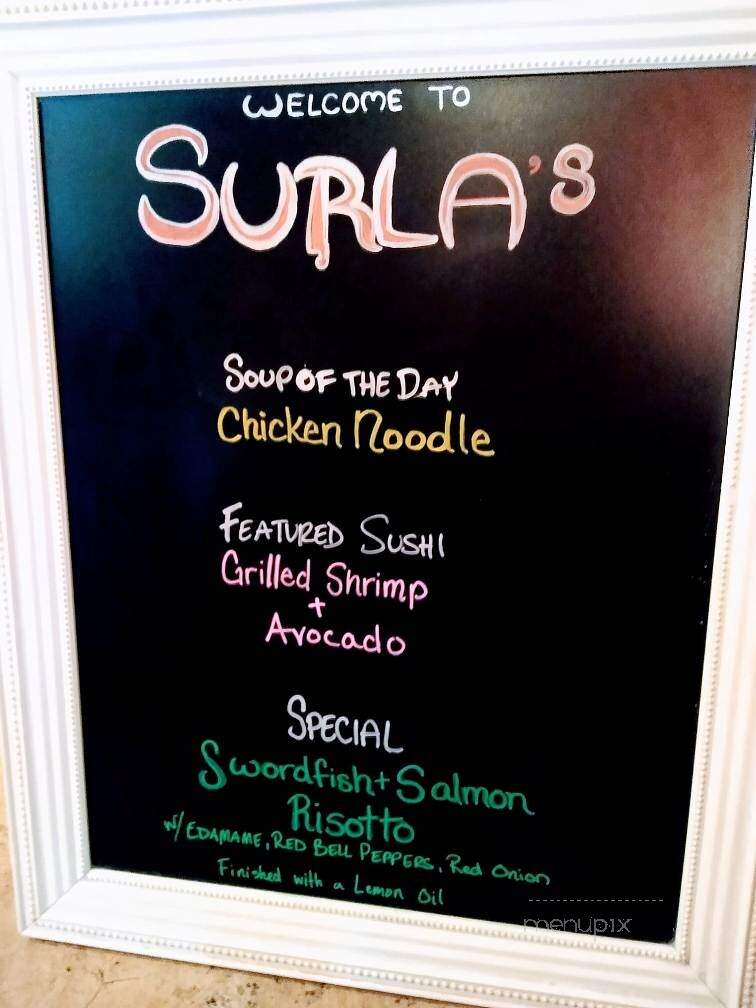 WELCOME TO
SURLA'S
SOUP OF THE DAY
Chicken Noodle
FEATURED SUSHI
Grilled Shrimp
+
Avocado
SPECIAL
Swordfish + Salmon
Risotto
W/ EDAMAME, RED BELL PEPPERS, Red Onion
Finished with a Lemon Oil
menupix